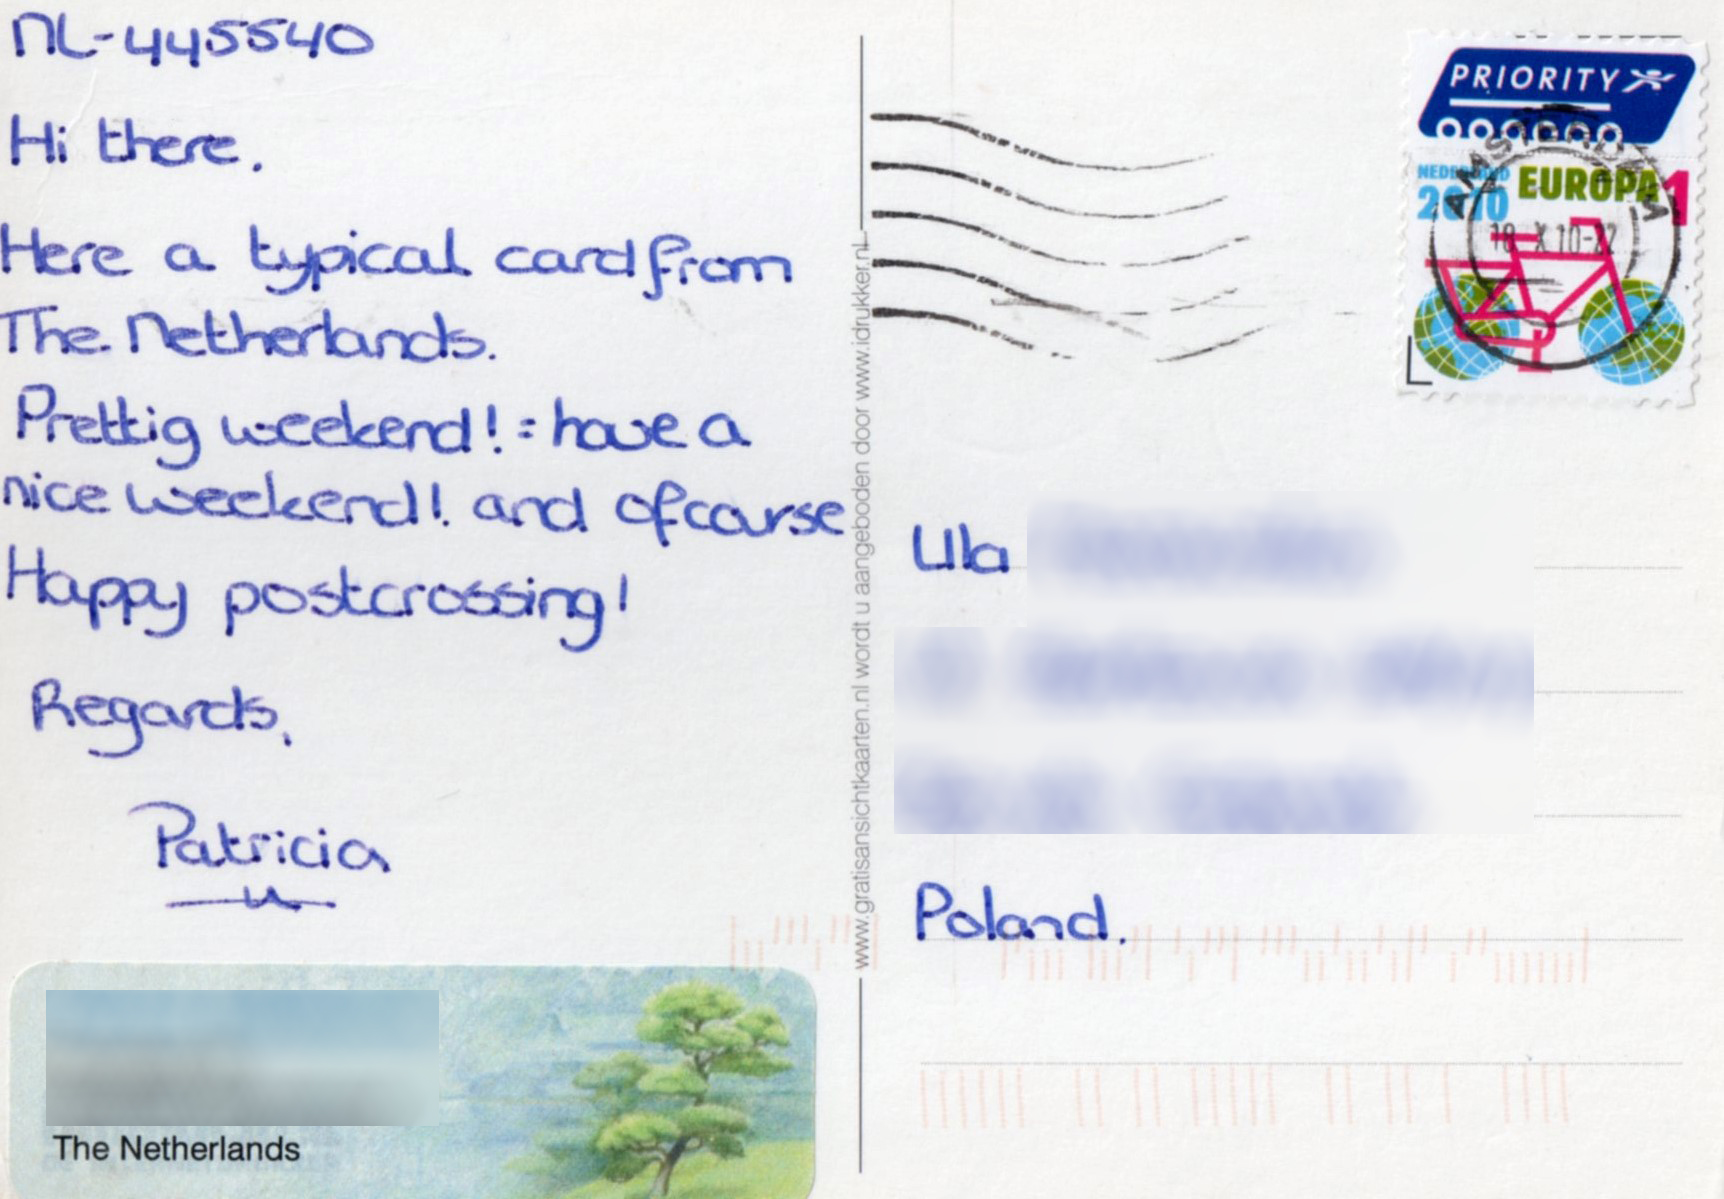 NL-445540
Hi there,
Here a typical card from
The Netherlands.
Prettig weekend! = have a
nice weekend! and ofcourse
Happy postcrossing!
Regards,
Patricia
The Netherlands
www.gratisansichtkaarten.nl wordt u aangeboden door www.idrukker.nl
PRIORITY
NEDERLAND
2010
EUROPA 1
AMSTERDAM
X 10-22
Ula
Poland.